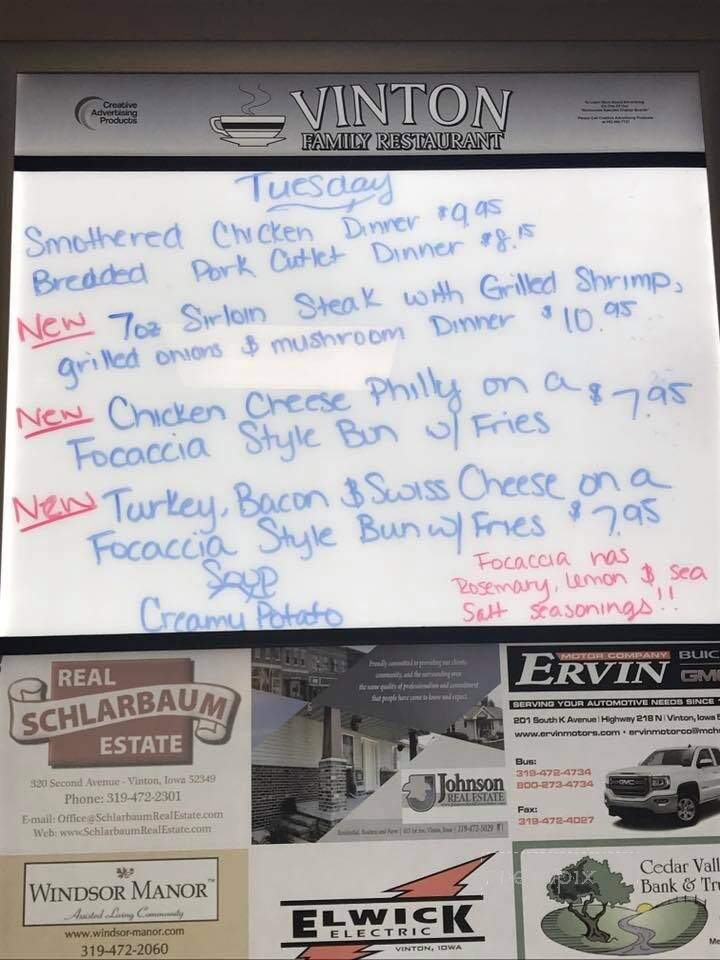 Creative
Advertising
Products
VINTON
FAMILY RESTAURANT
Tuesday
Smothered Chicken Dinner $9.95
Bredded Pork Cutlet Dinner $8.15
New 7oz Sirloin Steak with Grilled Shrimp,
grilled onions $ mushroom Dinner $10.95
New Chicken Cheese Philly on a $7.95
Focaccia Style Bun w/ Fries
New Turkey, Bacon $ Swiss Cheese on a
Focaccia Style Bun w/ Fries $7.95
Soup
Creamy Potato
Focaccia has
Rosemary, Lemon $ Sea
Salt seasonings!!
REAL
SCHLARBAUM
ESTATE
320 Second Avenue - Vinton, Iowa 52349
Phone: 319-472-2301
E-mail: Office@SchlarbaumRealEstate.com
Web: www.SchlarbaumRealEstate.com
Proudly committed to providing our clients,
community, and the surrounding area
the same quality of professionalism and commitment
that people have come to know and expect.
Johnson
REAL ESTATE
319-472-5029
MOTOR COMPANY BUIC
ERVIN GM
SERVING YOUR AUTOMOTIVE NEEDS SINCE
201 South K Avenue | Highway 218 N | Vinton, Iowa
www.ervinmotors.com • ervinmotorco@mch
Bus:
319-472-4734
800-273-4734
Fax:
319-472-4027
WINDSOR MANOR™
Assisted Living Community
www.windsor-manor.com
319-472-2060
ELWICK
ELECTRIC
VINTON, IOWA
Cedar Vall
Bank & Tru
Me